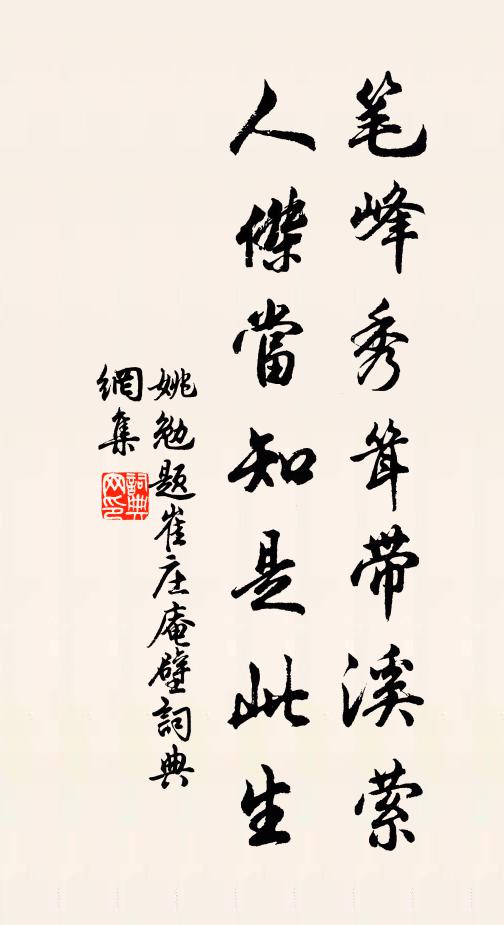 笔峰秀耸带溪萦
人傑當知是此生
姚勉题崔庄庵壁詞典
網集
詞典
网印